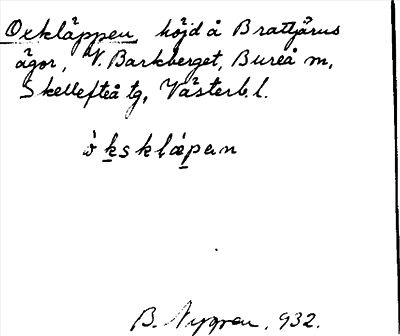 Oxkläppen, höjd å Brattjärns
ägor, V. Barkberget, Bureå m,
Skellefteå tg, Västerb. l.
ò k̲sklæp̲ən
B. Nygren, 932.